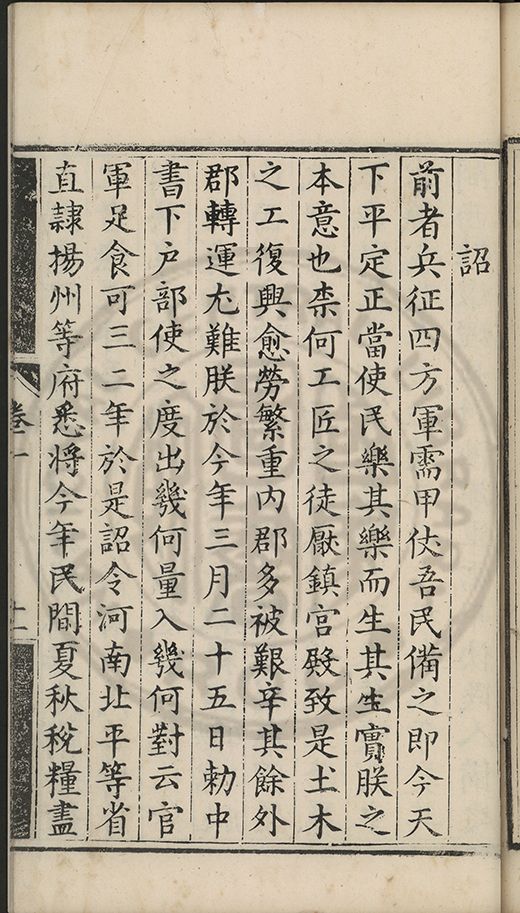 詔
前者兵征四方軍需甲仗吾民備之即今天
下平定正當使民樂其樂而生其生實朕之
本意也柰何工匠之徒厭鎮宮殿致是土木
之工復興愈勞繁重內郡多被艱辛其餘外
郡轉運尤難朕於今年三月二十五日勅中
書下戶部使之度出幾何量入幾何對云官
軍足食可三二年於是詔令河南北平等省
直隷揚州等府悉將今年民間夏秋稅糧盡
卷一
十一